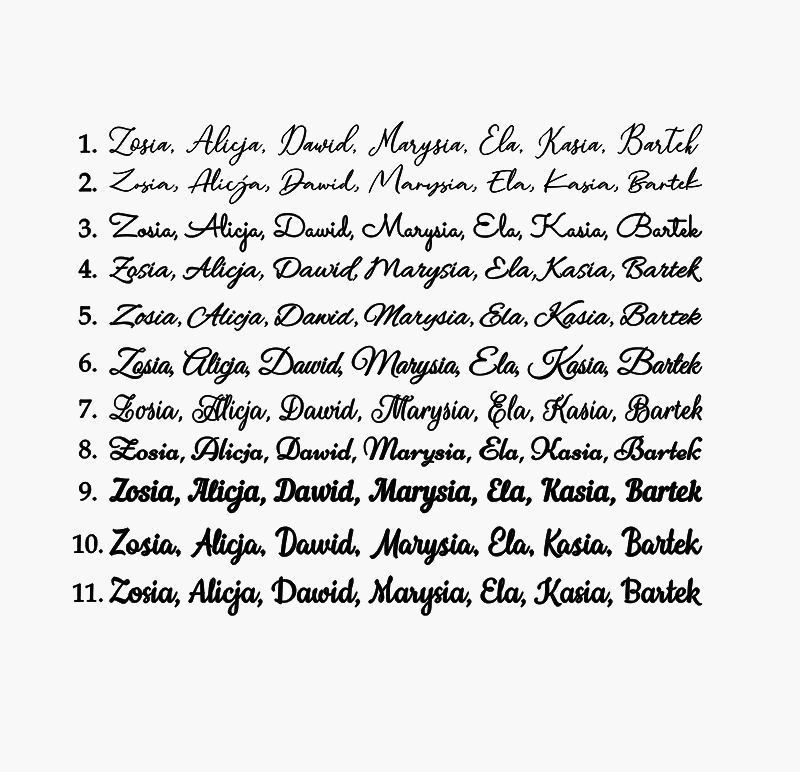 1. Zosia, Alicja, Dawid, Marysia, Ela, Kasia, Bartek
2. Zosia, Alicja, Dawid, Marysia, Ela, Kasia, Bartek
3. Zosia, Alicja, Dawid, Marysia, Ela, Kasia, Bartek
4. Zosia, Alicja, Dawid, Marysia, Ela, Kasia, Bartek
5. Zosia, Alicja, Dawid, Marysia, Ela, Kasia, Bartek
6. Zosia, Alicja, Dawid, Marysia, Ela, Kasia, Bartek
7. Zosia, Alicja, Dawid, Marysia, Ela, Kasia, Bartek
8. Zosia, Alicja, Dawid, Marysia, Ela, Kasia, Bartek
9. Zosia, Alicja, Dawid, Marysia, Ela, Kasia, Bartek
10. Zosia, Alicja, Dawid, Marysia, Ela, Kasia, Bartek
11. Zosia, Alicja, Dawid, Marysia, Ela, Kasia, Bartek